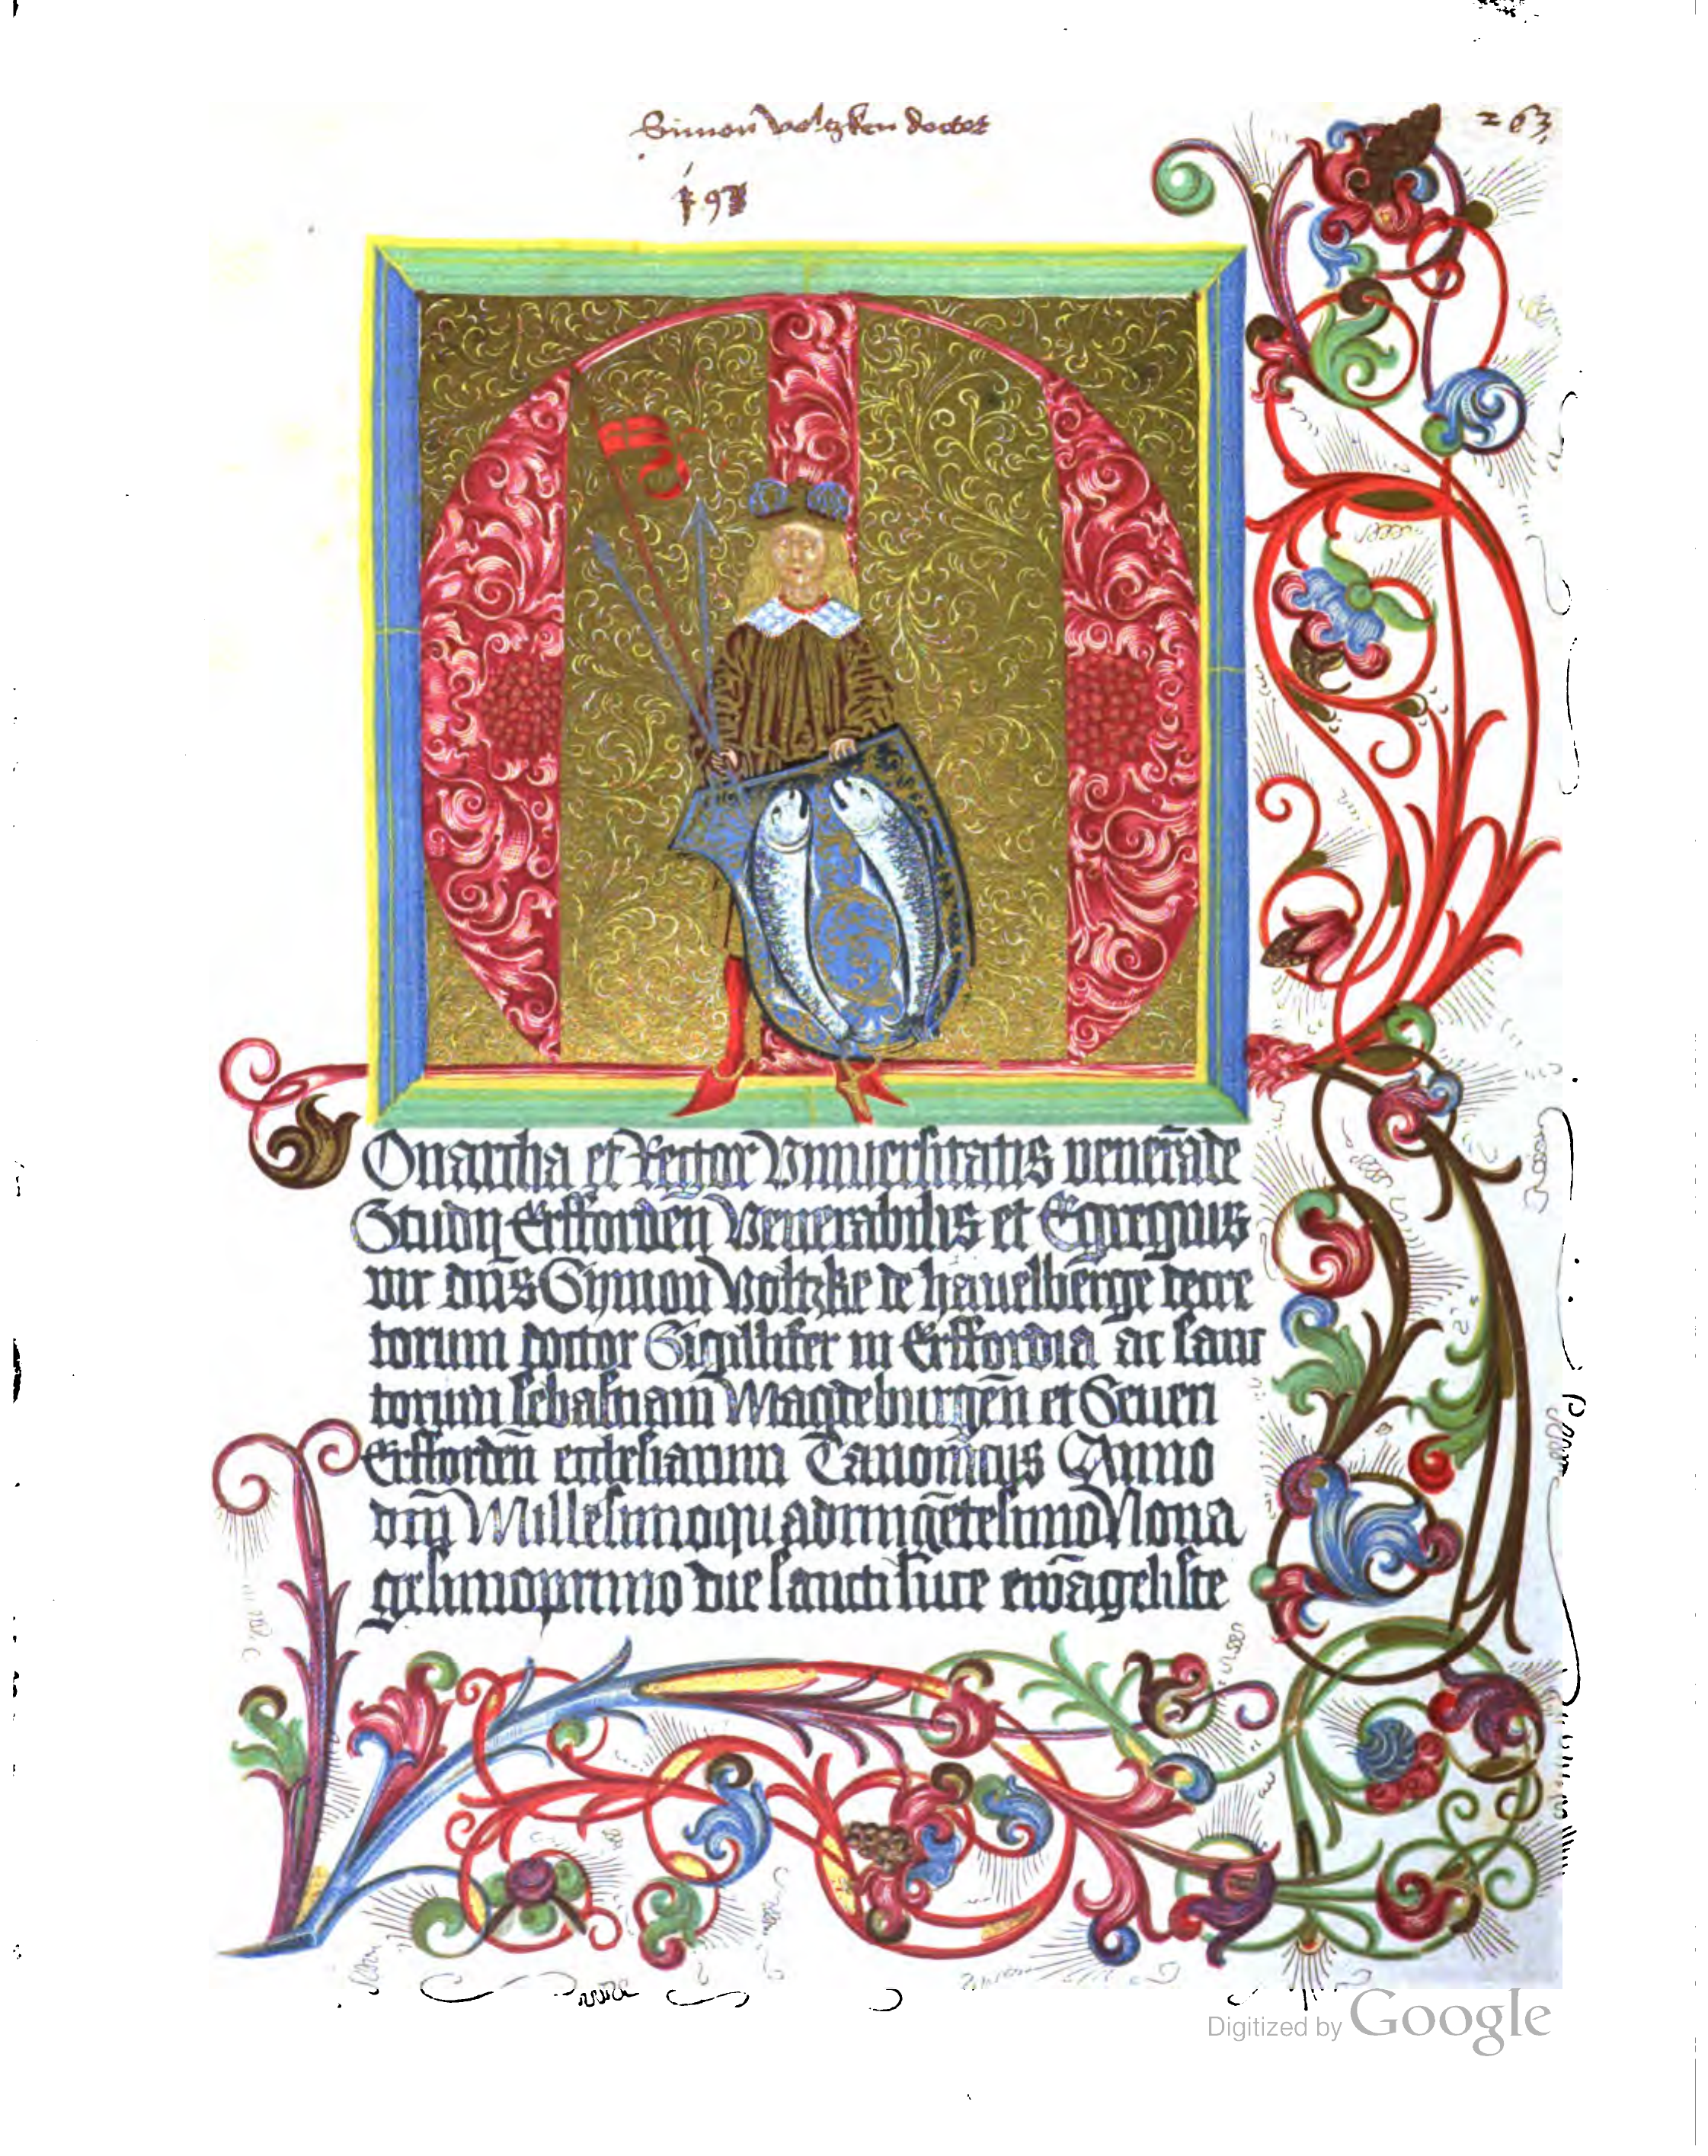 Simon voltzken doctor
263
Onarcha et Rector Vniuersitatis venerāde
Studij Erfforden̄ Venerabilis et Egregius
vir dn̄s Symon Voltzke de hauelberge decre
torum doctor Sigillifer in Erffordia ac sanc
torum sebastiani Magdeburgen̄ et Seueri
Erfforden̄ ecclesiarum Canonicus Anno
dn̄i Millesimoquadringētesimo Nona
gesimoprimo die sancti luce ewāgeliste
Digitized by Google